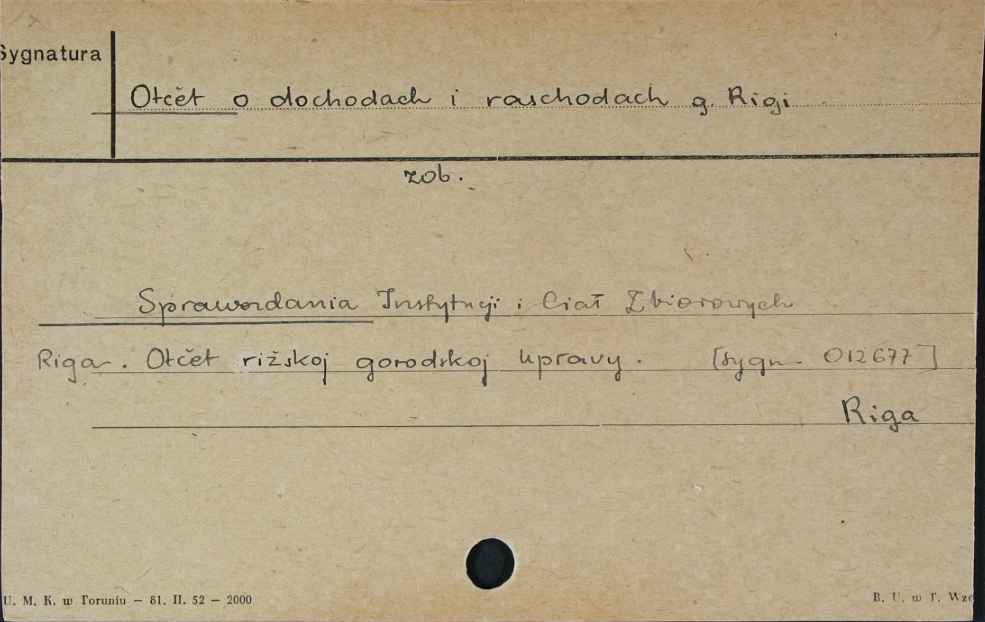 Sygnatura
Otčët o dochodach i raschodach g. Rigi
zob.
Sprawozdania Instytucji i Ciał Zbiorowych
Riga. Otčët rižskoj gorodskoj upravy. [sygn. 012677]
Riga
U. M. K. w Toruniu – 81. II. 52 – 2000
B. U. w T.